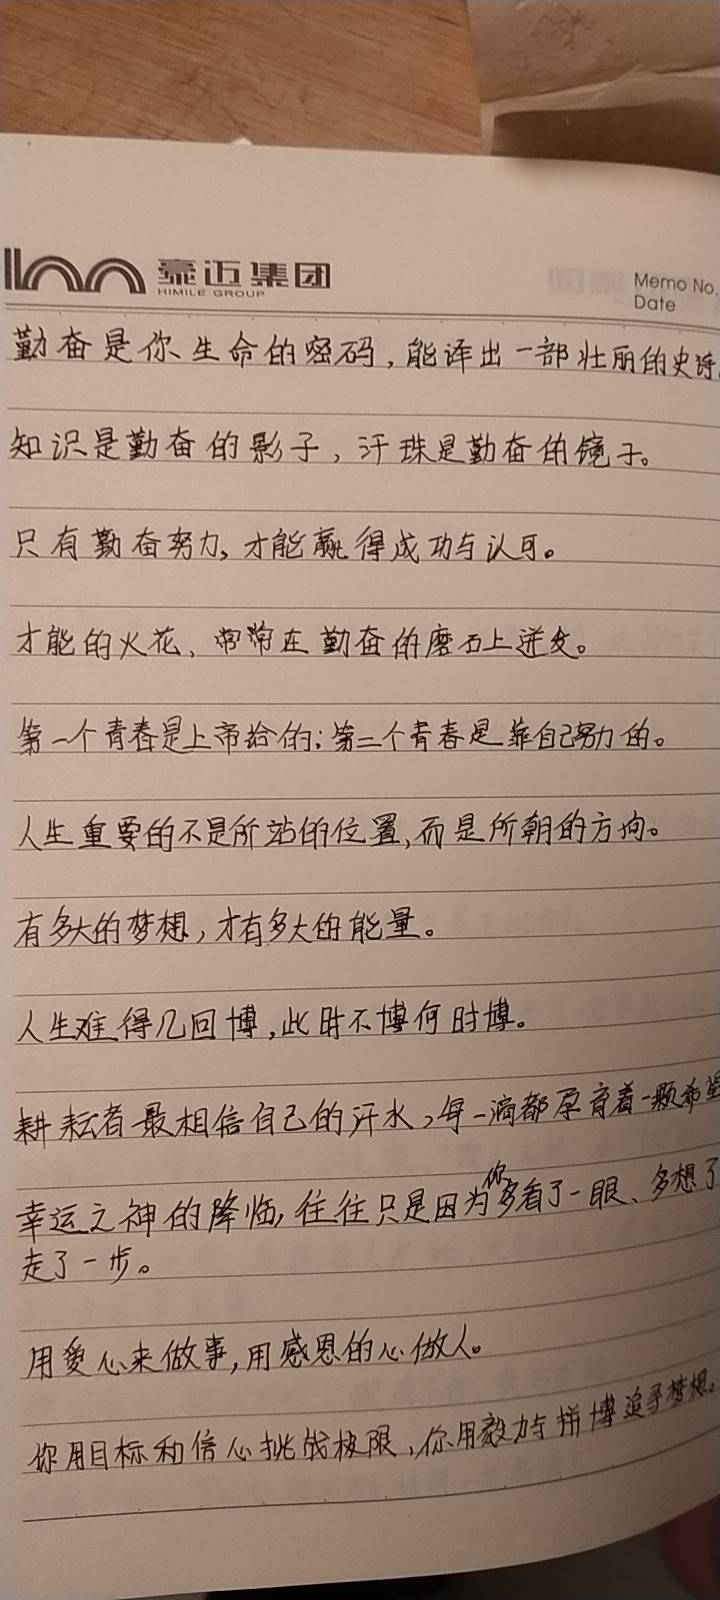 豪迈集团
HIMILE GROUP
Memo No.
Date
勤奋是你生命的密码，能译出一部壮丽的史诗
知识是勤奋的影子，汗珠是勤奋的镜子。
只有勤奋努力，才能赢得成功与认可。
才能的火花、常常在勤奋的磨石上迸发。
第一个青春是上帝给的；第二个青春是靠自己努力的。
人生重要的不是所站的位置，而是所朝的方向。
有多大的梦想，才有多大的能量。
人生难得几回博，此时不博何时博。
耕耘者最相信自己的汗水，每一滴都孕育着一颗希望
幸运之神的降临，往往只是因为你多看了一眼、多想了
走了一步。
用爱心来做事，用感恩的心做人。
你用目标和信心挑战极限，你用毅力与拼博追寻梦想。